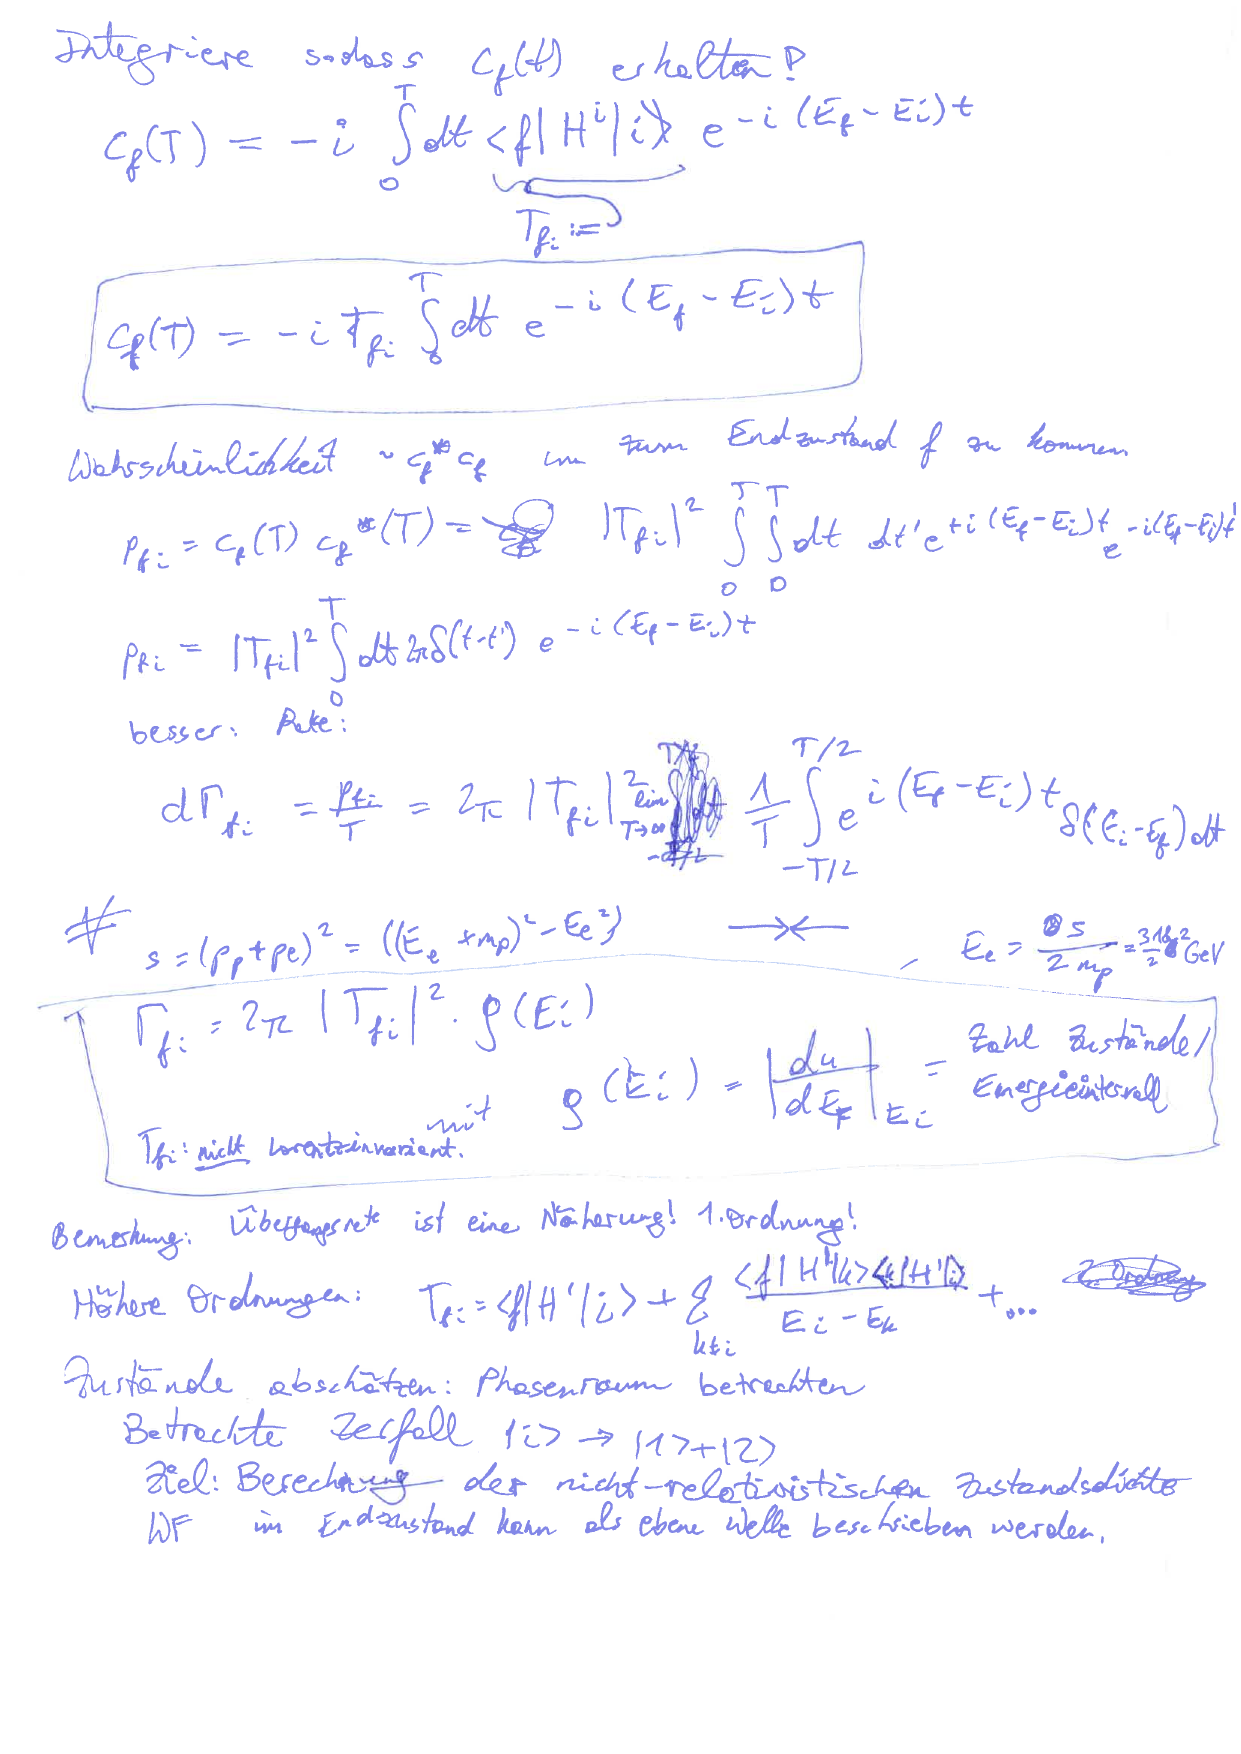 Integriere sodass c_f(t) erhalten!
c_f(T) = -i ∫_0^T dt <f|H^i|i> e^{-i(E_f - E_i)t}
T_{fi} :=
c_f(T) = -i T_{fi} ∫_0^T dt e^{-i(E_f - E_i)t}
Wahrscheinlichkeit ~ c_f^* c_f um zum Endzustand f zu kommen
p_{fi} = c_f(T) c_f^*(T) = |T_{fi}|^2 ∫_0^T ∫_0^T dt dt' e^{+i(E_f - E_i)t} e^{-i(E_f - E_i)t'}
p_{fi} = |T_{fi}|^2 ∫_0^T dt 2πδ(t-t') e^{-i(E_f - E_i)t}
besser: Rate:
dΓ_{fi} = p_{fi}/T = 2π |T_{fi}|^2 lim_{T→∞} 1/T ∫_{-T/2}^{T/2} e^{i(E_f - E_i)t} δ(E_i - E_f) dt
s = (p_p + p_e)^2 = ((E_e + m_p)^2 - E_e^2) →← , E_e = s/(2 m_p) = GeV
Γ_{fi} = 2π |T_{fi}|^2 · ρ(E_i)
mit ρ(E_i) = |dn/dE_f|_{E_i} = Zahl Zustände/ Energieintervall
T_{fi}: nicht Lorentzinvariant.
Bemerkung: Übergangsrate ist eine Näherung! 1. Ordnung!
Höhere Ordnungen: T_{fi} = <f|H'|i> + Σ_{k≠i} <f|H'|k><k|H'|i> / (E_i - E_k) + ...
Zustände abschätzen: Phasenraum betrachten
Betrachte Zerfall |i> → |1>+|2>
Ziel: Berechnung der nicht-relativistischen Zustandsdichte
WF im Endzustand kann als ebene Welle beschrieben werden.